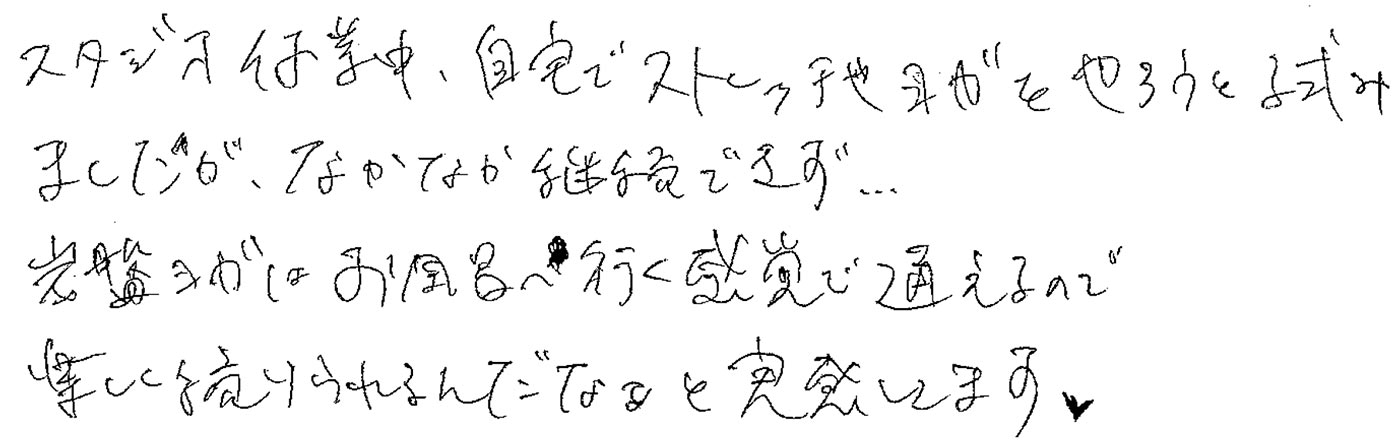 スタジオ休業中、自宅でストレッチやヨガをやろうと試み
ましたが、なかなか継続できず…
岩盤ヨガはお風呂へ行く感覚で通えるので
楽しく続けられるんだなぁと実感してます♥